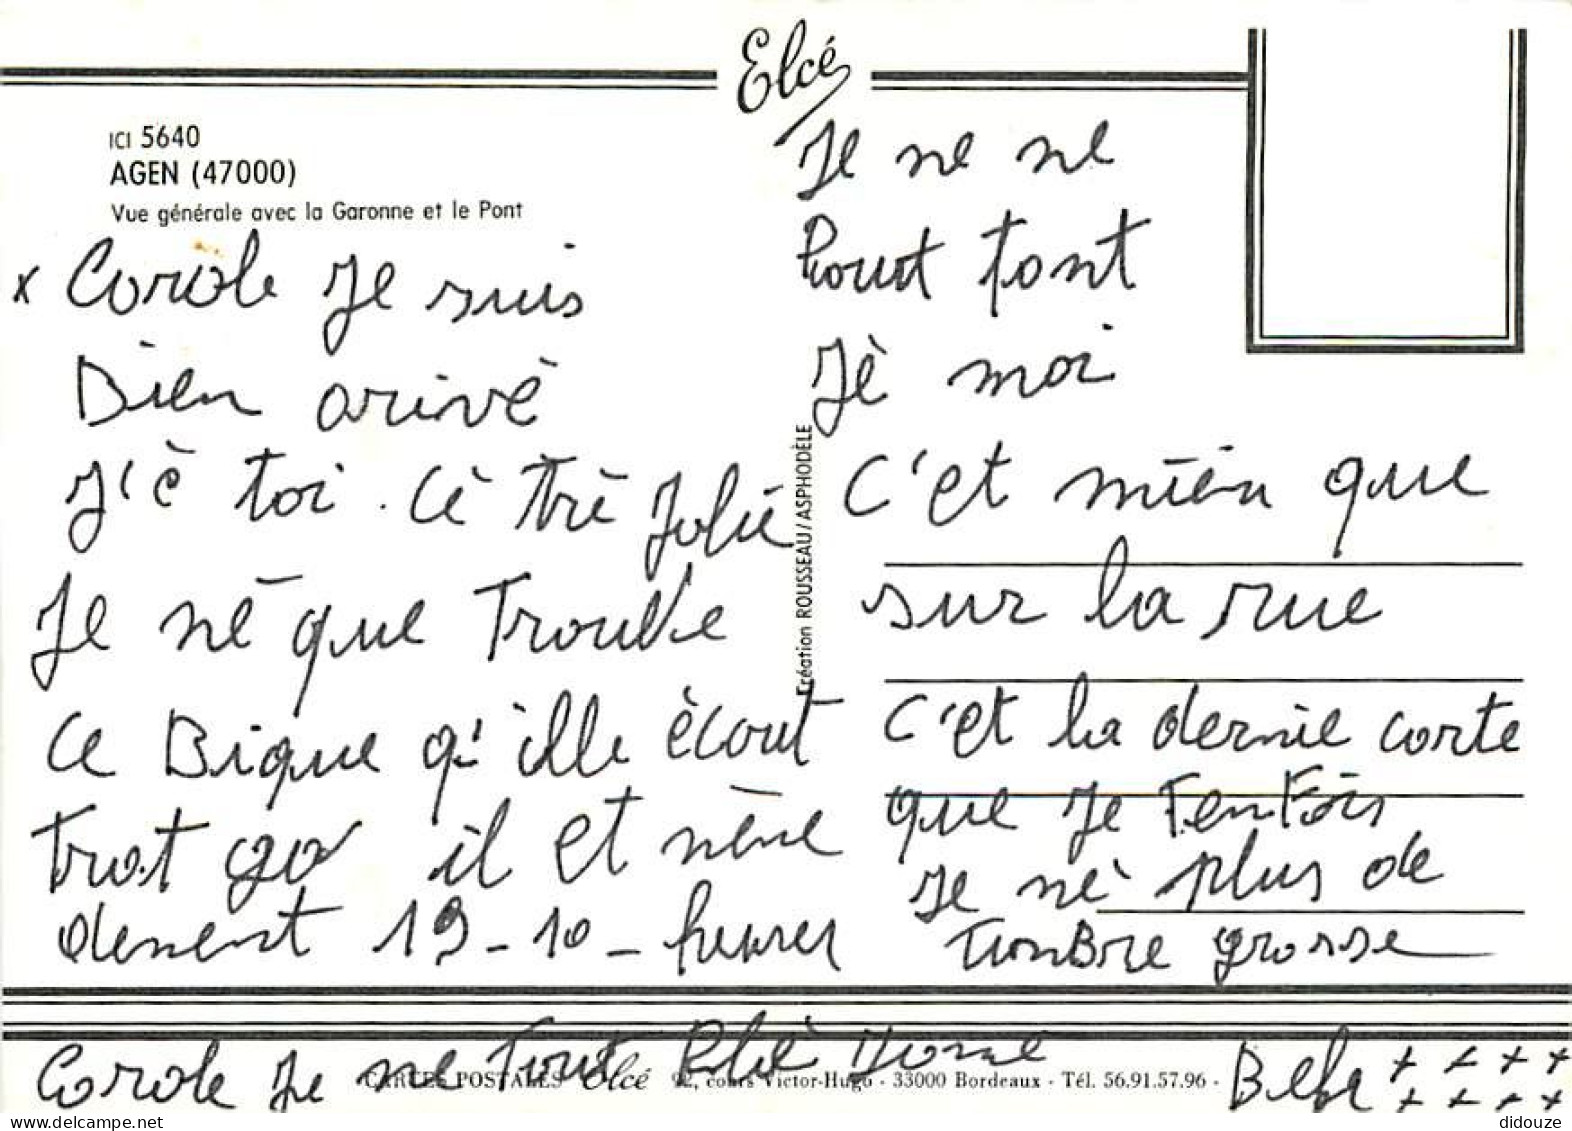 Elcé
ICI 5640
AGEN (47000)
Vue générale avec la Garonne et le Pont
x Corole Je suis
Bien arivé
J'è toi. Cè Trè Jolie
Je nè que Trouve
Ce Bique q' ille écout
Trot ça il et mène
denent 19-10- heures
Je ne ne
Pout tont
Jè moi
C'et mièn que
sur la rue
C'et la dernie corte
que Je T'enfois
Je nè plus de
Timbre grosse
Création ROUSSEAU/ASPHODÈLE
Corole Je ne Tout Bela x x x x
x x x x
CARTES POSTALES Elcé 92, cours Victor-Hugo - 33000 Bordeaux - Tél. 56.91.57.96 -
www.delcampe.net
didouze